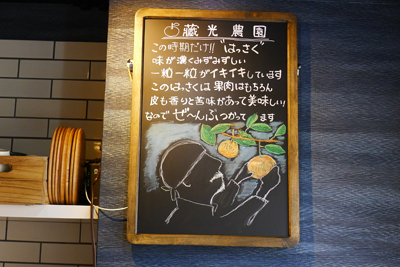 藏光農園
この時期だけ!! "はっさく"
味が濃くみずみずしい
一粒一粒がイキイキしています
このはっさくは果肉はもちろん
皮も香りと苦味があって美味しい!
なので ぜ〜んぶつかってます